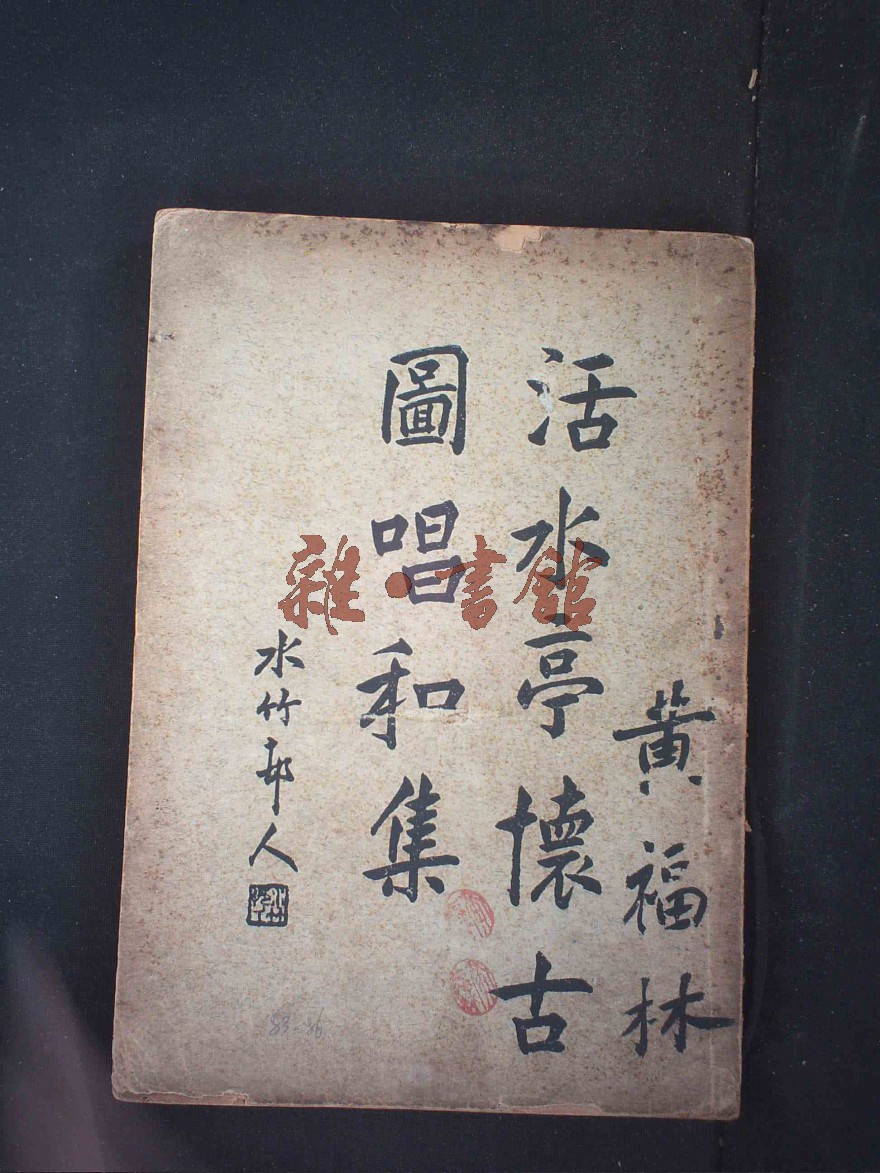 黄福林
活水亭懷古
圖唱和集
水竹邨人
雜·書館
83-86